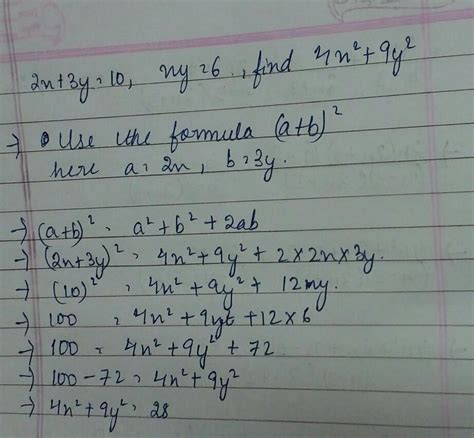 2x+3y=10, xy=6, find 4x²+9y²
→ • Use the formula (a+b)²
here a=2x, b=3y.
→ (a+b)² = a²+b²+2ab
→ (2x+3y)² = 4x²+9y²+2×2x×3y.
→ (10)² = 4x²+9y²+12xy.
→ 100 = 4x²+9y²+12×6
→ 100 = 4x²+9y²+72
→ 100-72=4x²+9y²
→ 4x²+9y²=28